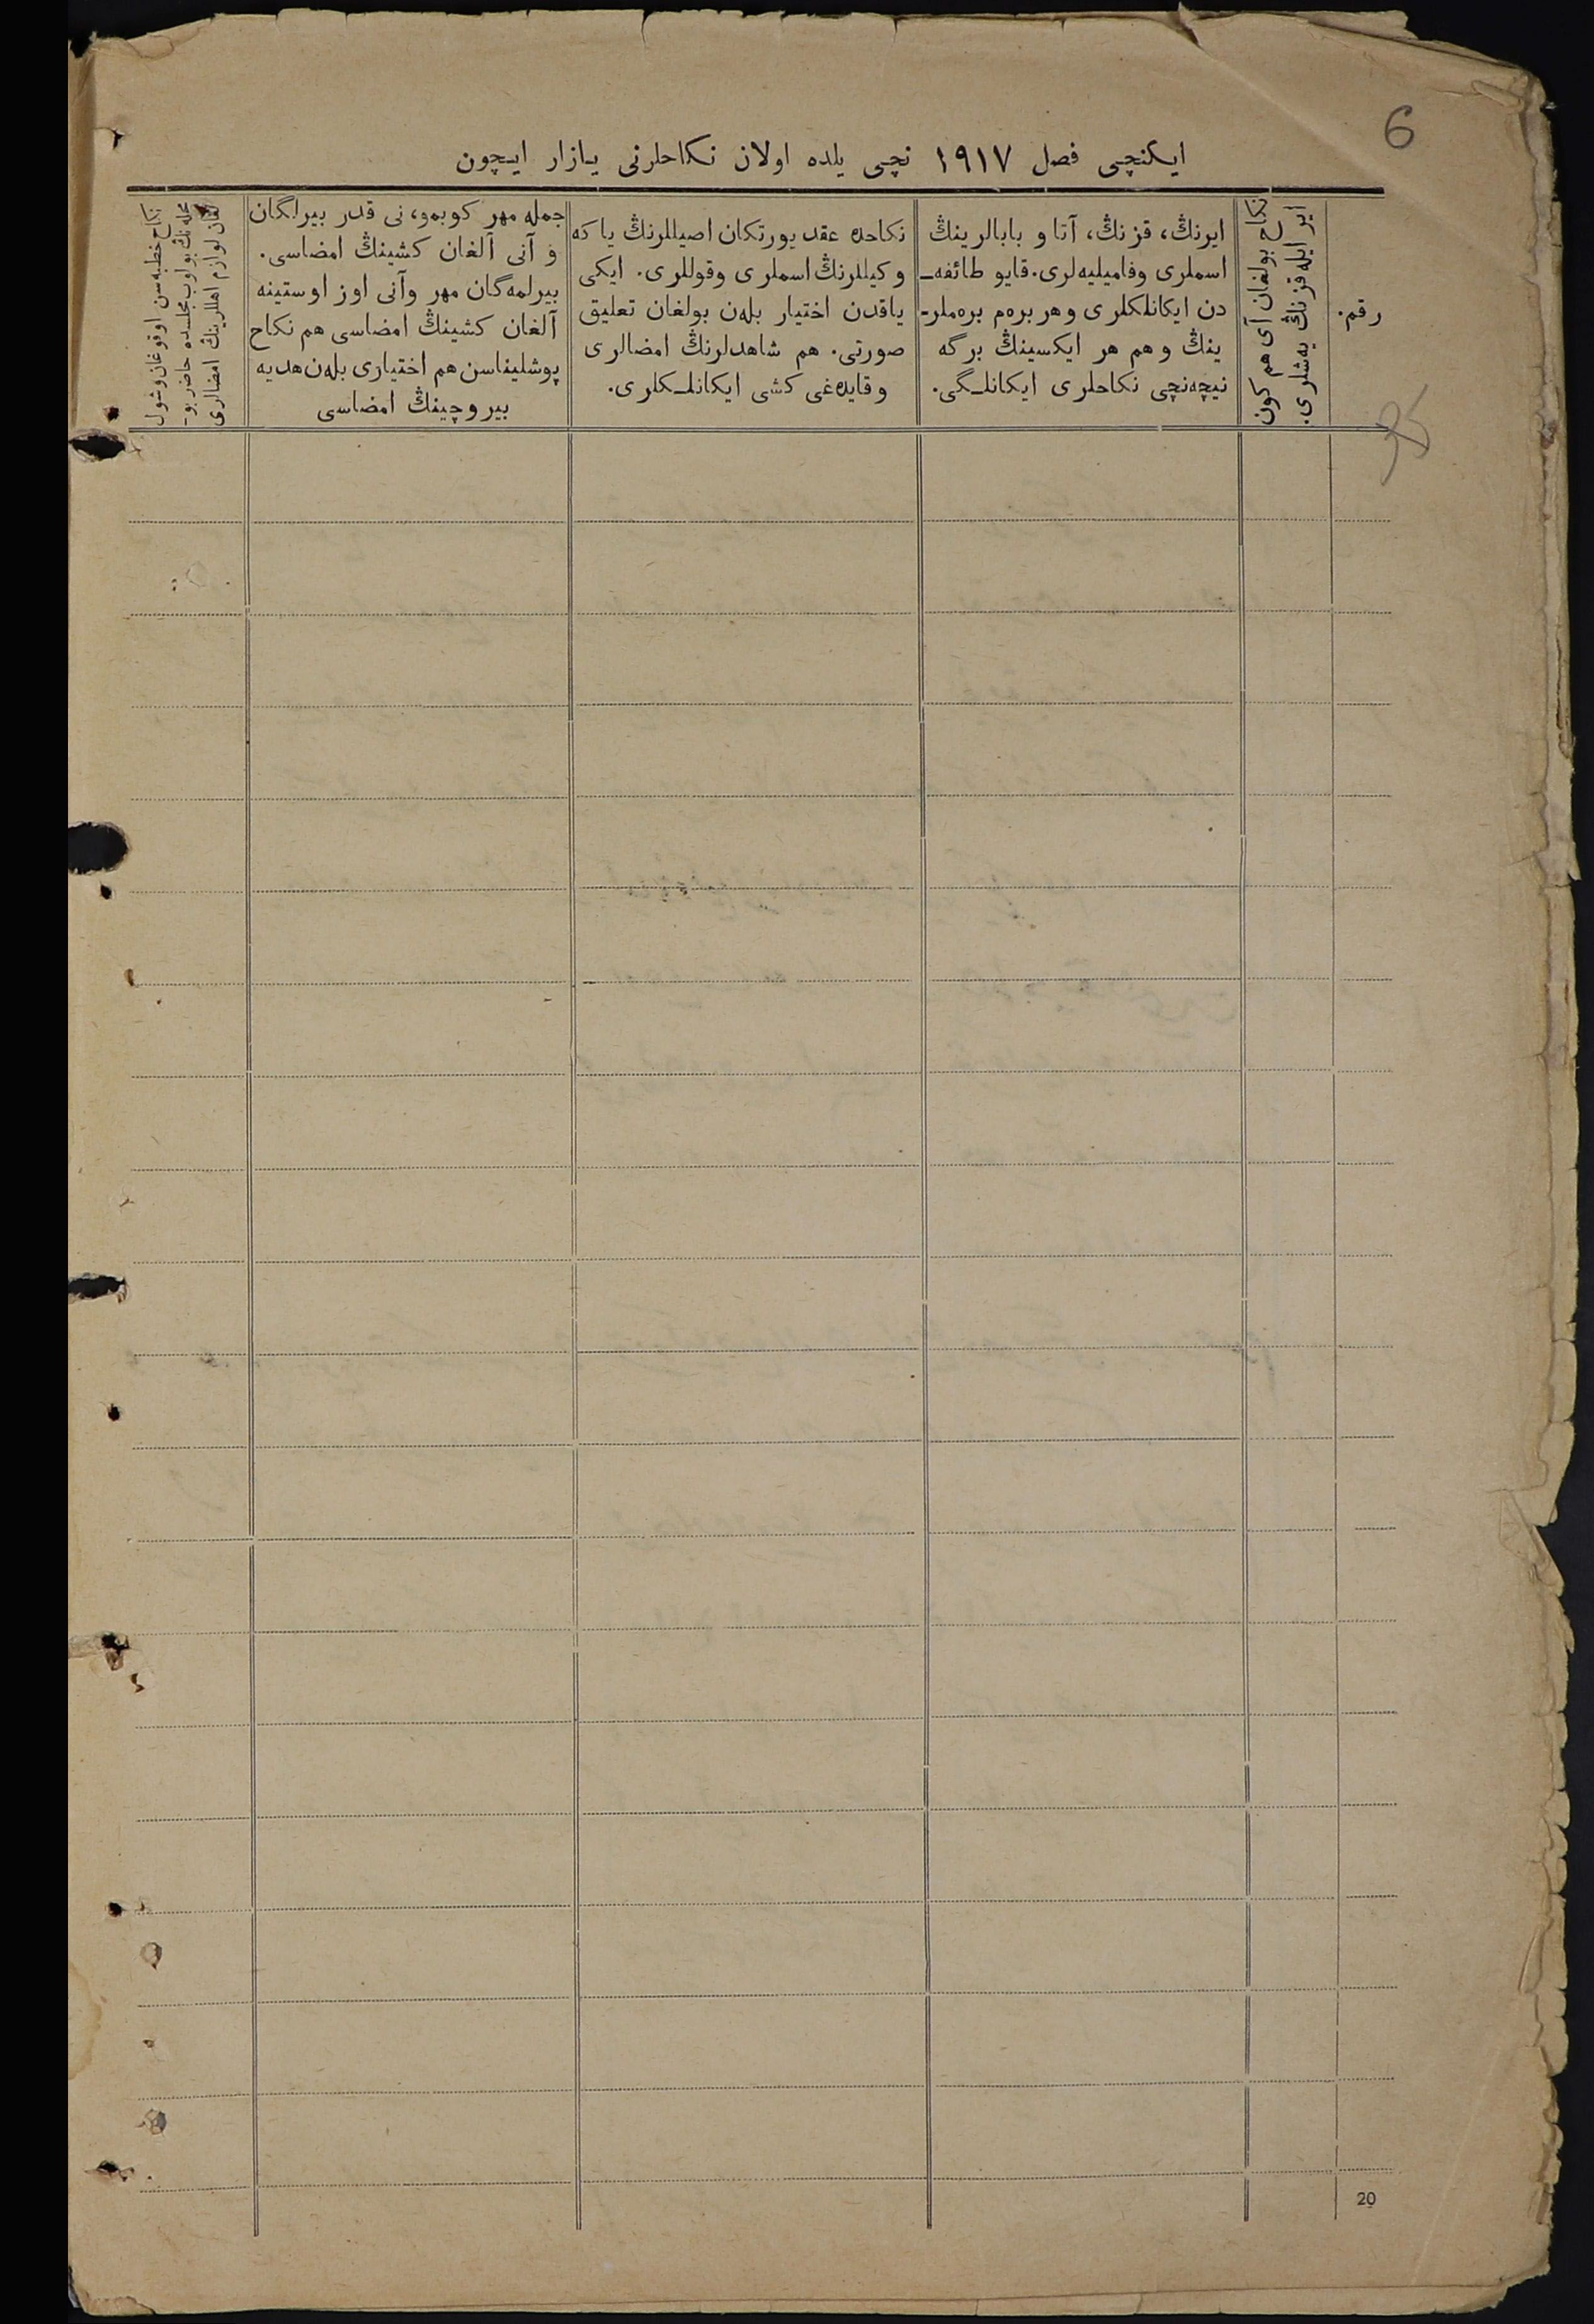 6
ایکنچی فصل ١٩١٧ نچی یلده اولان نکاحلرنی یازار ایچون
رقم.
نکاح بولغان آی هم کون
ایر ایله قزنڭ یەشلری.
ایرنڭ، قزنڭ، آتا و بابالرینڭ
اسملری وفامیلیەلری. قایو طائفەـ
دن ایکانلکلری و هر برەم برەملرـ
ینڭ و هم هر ایکسینڭ برگه
نیچەنچی نکاحلری ایکانلـگی.
نکاحده عقد یورتکان اصیللرنڭ یا که
وکیللرنڭ اسملری وقوللری. ایکی
یاقدن اختیار بلەن بولغان تعلیق
صورتی. هم شاهدلرنڭ امضالری
وقایدەغی کشی ایکانلـکلری.
جمله مهر کوبمو، نی قدر بیرلگان
و آنی آلغان کشینڭ امضاسی.
بیرلمەگان مهر وآنی اوز اوستینه
آلغان کشینڭ امضاسی هم نکاح
پوشلیناسن هم اختیاری بلەن هدیه
بیروچینڭ امضاسی
نکاح خطبەسن اوقوغان وشول
محلەنڭ بولوب مجلسده حاضر بوـ
لغان لوازم اهللرینڭ امضالری
20